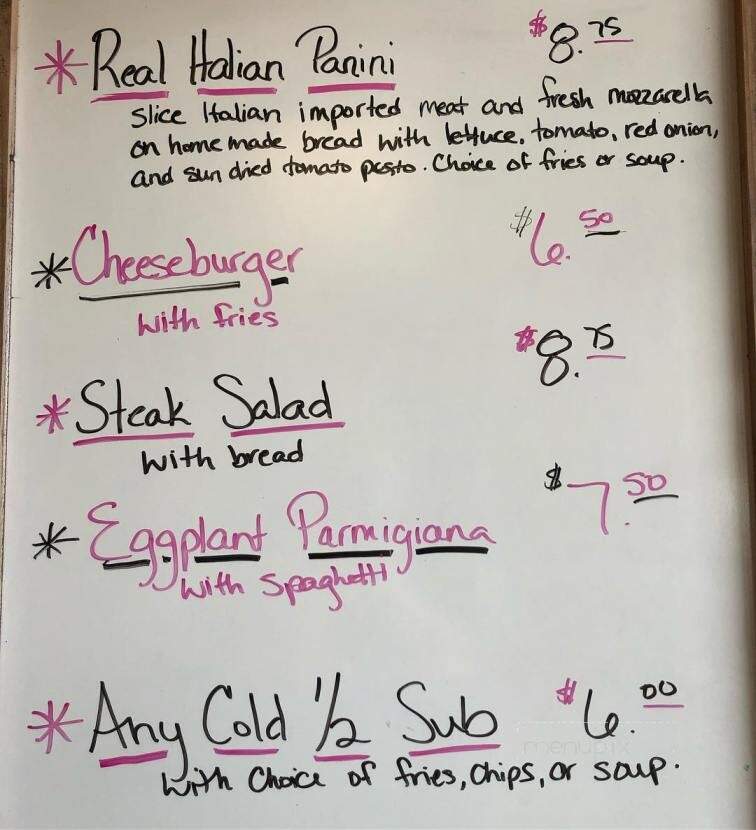 * Real Italian Panini $8.75
Slice Italian imported meat and fresh mozzarella
on homemade bread with lettuce, tomato, red onion,
and sun dried tomato pesto. Choice of fries or soup.
* Cheeseburger $6.50
with fries
* Steak Salad $8.75
with bread
* Eggplant Parmigiana $7.50
with Spaghetti
* Any Cold 1/2 Sub $6.00
with Choice of fries, chips, or soup.
menupix